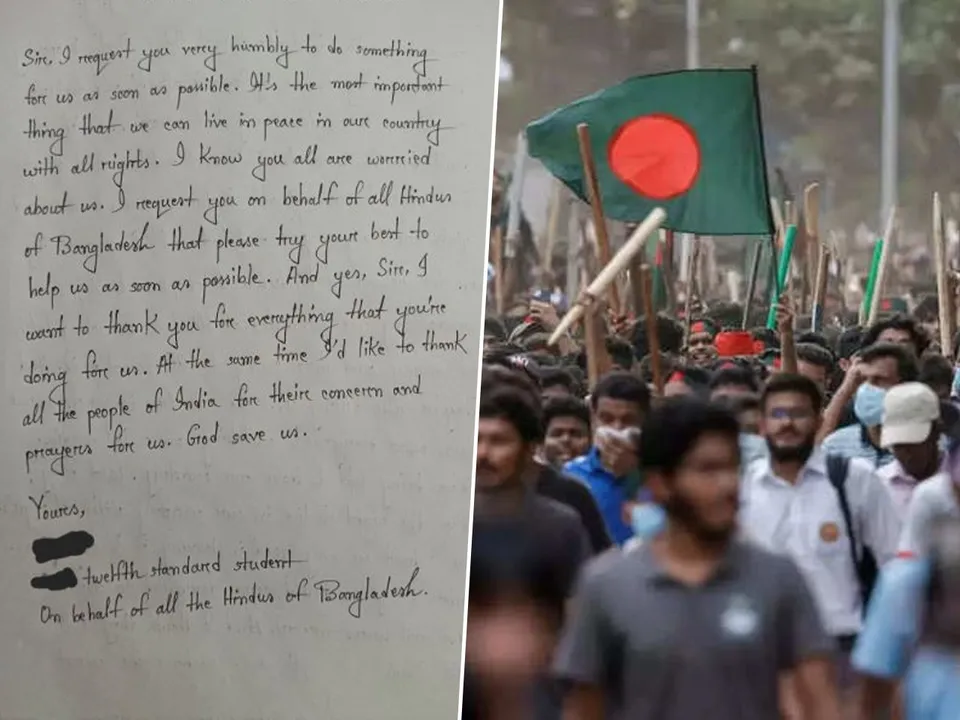 Sir, I request you very humbly to do something
for us as soon as possible. It's the most important
thing that we can live in peace in our country
with all rights. I know you all are worried
about us. I request you on behalf of all Hindus
of Bangladesh that please try your best to
help us as soon as possible. And yes, Sir, I
want to thank you for everything that you're
doing for us. At the same time I'd like to thank
all the people of India for their concern and
prayers for us. God save us.
Yours,
twelfth standard student
On behalf of all the Hindus of Bangladesh.